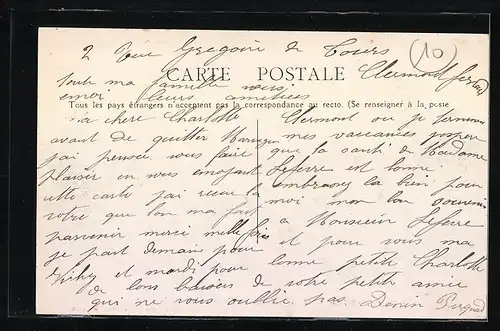 2 Rue Gregoire de Tours
Clermont Ferrand
(10)
Toute ma famille vous
envoi leurs amitiées
CARTE POSTALE
Tous les pays étrangers n'acceptent pas la correspondance au recto. (Se renseigner à la poste
Ma chere Charlotte
avant de quitter
j'ai pensée vous faire
plaisir en vous envoyant
cette carte j'ai recue la
votre que l'on ma fait
parvenir merci mille fois
je part demain pour
Vichy et mardi pour
Clermont ou je terminer
mes vacances j'espere
que la santi de Madame
Lefevre est bonne
embrassez la bien pour
moi mon bon souvenir
a Monsieur Lefevre
et pour vous ma
bonne petite Charlotte
de bons baisers de votre petite amie
qui ne vous oublie pas.